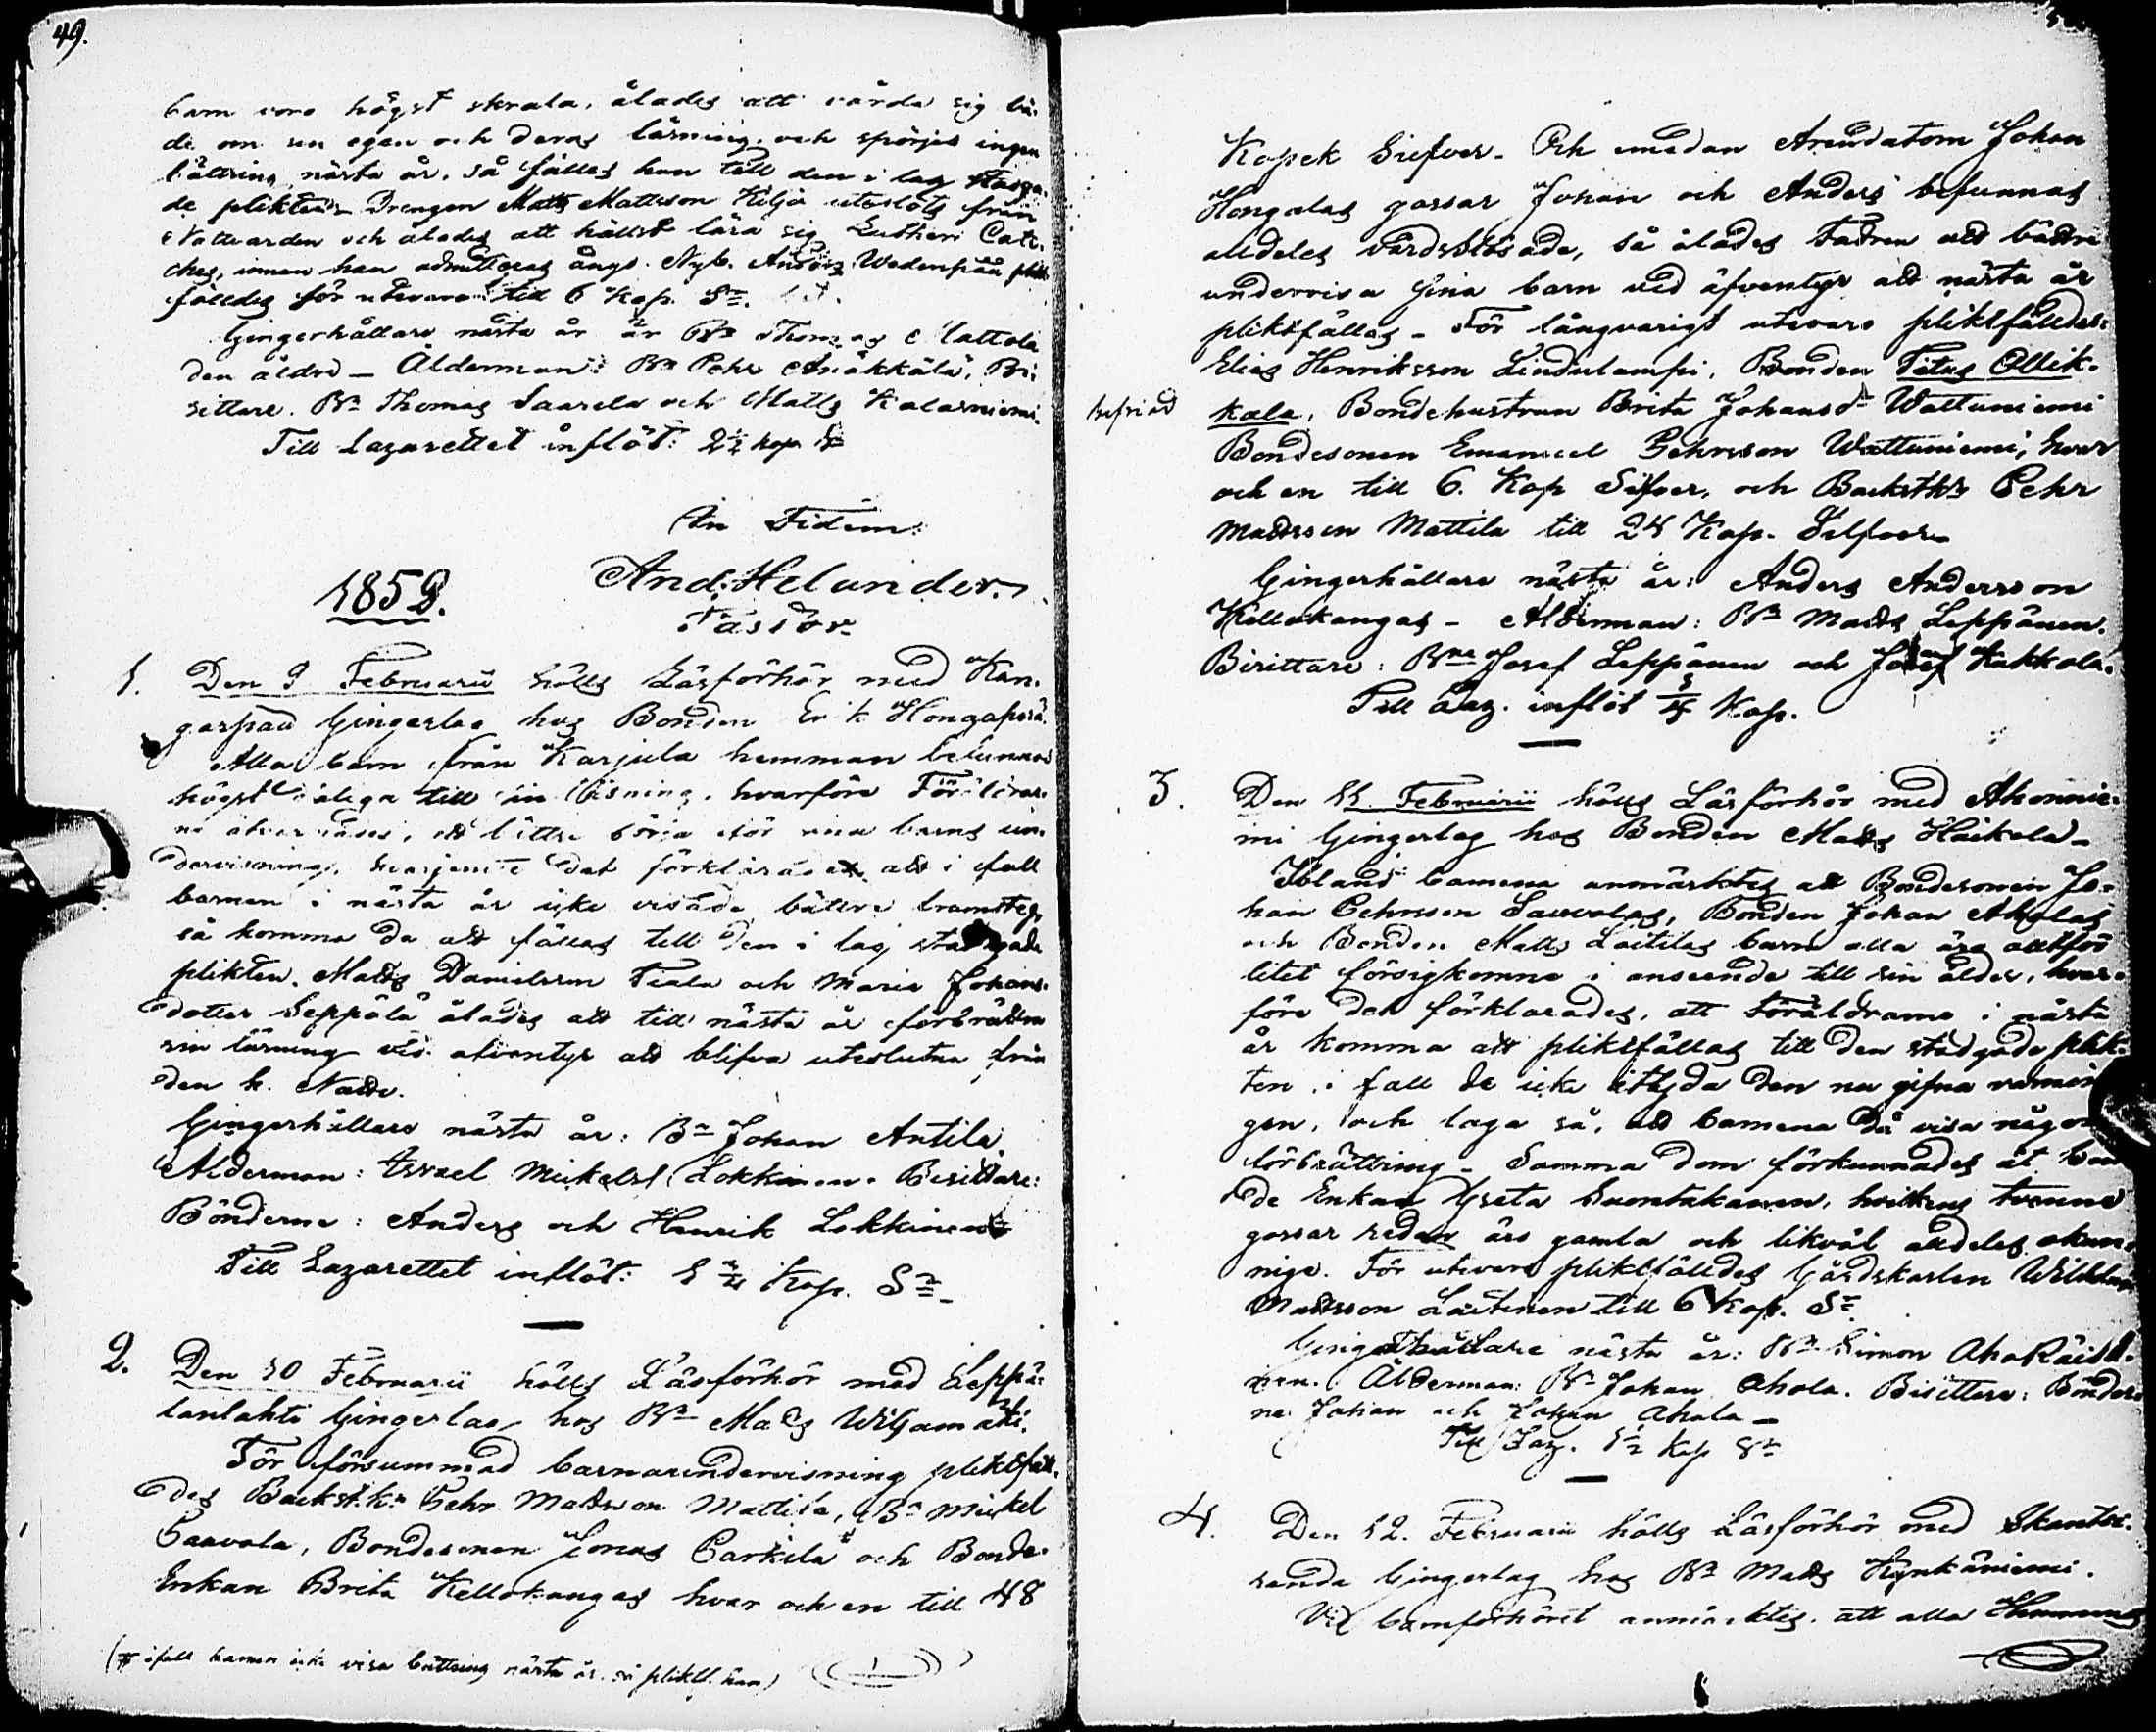 49.
barn voro högst skrala, ålades att vårda sig bå-
de om sin egen och deras lärning, och spörjes ingen
bättring nästa år, så fälles han till den i lag stadga-
de plikten. Drengen Matts Mattsson Kilja utslöts från
Nattvarden och ålades att hållst lära sig Lutheri Cate-
ches, innan han admitteras ånyo. Nyb. Anders Wedenpää plikt-
fälldes för utevaro till 6 Kop. Sr.
Gingerhållare nästa år är Bn Thomas Mattola
den äldre — Ålderman: Bn Pehr Anäkkälä, Bi-
sittare. Bn Thomas Saarela och Matts Kalasniemi.
Till Lazarettet inflöt: 2½ kop Sr
In Fidem:
And. Helander.
Pastor
1852.
1. Den 9 Februarii hölls Läsförhör med Kan-
gaspää Gingerlag hos Bonden Erik Hongaperä.
Alla barn från Karjula hemman befunnos
högst dåliga till sin läsning, hvarföre Föräldrar-
ne åtvarnades, att bättre börja för sina barns un-
dervisning, hvarjemte det förklarades att i fall
barnen i nästa år icke visade bättre framsteg,
så komma de att fällas till den i lag stadgade
plikten. Matts Danielsson Tiala och Maria Johans-
dotter Seppälä ålades att till nästa år förbättra
sin lärning vid äfventyr att blifva uteslutna från
den h. Nattv.
Gingerhållare nästa år: Bn Johan Antila.
Alderman: Israel Mickelss. Lokkinen. Bisittare:
Bönderne: Anders och Henrik Lokkinen
Till Lazarettet inflöt: 1¾ Kop. Sr
2. Den 10 Februarii hölls Läsförhör med Leppä-
lanlahti Gingerlag hos Bn Matts Wiljamäki.
För försummad barnaundervisning pliktfäll-
des Backst.kn Pehr Matsson Mattila, Bn Mickel
Saavola, Bondesonen Jonas Parkila och Bonde-
Enkan Brita Kellokangas hvar och en till 48
(# ifall barnen icke visa bättring nästa år, så pliktf. han)
Kopek Silfver. Och emedan Arendatorn Johan
Hongalas gossar Johan och Anders befunnas
alldeles vårdslösade, så ålades Fadren att bättre
undervisa sina barn vid äfventyr att nästa år
pliktfällas. För långvarigt utevaro pliktfälldes:
Elias Henriksson Lindulampi, Bonden Titus Ollik-
befriad
kala, Bondehustrun Brita Johansd:r Wattuniemi
Bondesonen Emanuel Pehrsson Wattuniemi, hvar
och en till 6. Kop Silfver, och Backstk:n Pehr
Madsson Mattila till 24 Kop. Silfver
Gingerhållare nästa år: Anders Andersson
Kellokangas – Alderman: Bn Matts Leppänen.
Bisittare: Bne Josef Leppänen och Josef Kakkola.
Till Laz. inflöt ¾ Kop.
3. Den 11. Februarii hölls Läsförhör med Ahonnie-
mi Gingerlag hos Bonden Matts Haikola –
Ibland barnena anmärktes att Bondesonen Jo-
han Pehrsson Sauvolas, Bonden Johan Aholas
och Bonden Matts Laitilas barn alla äro alltför
litet försigkomne i anseende till sin ålder, hvar-
före det förklarades, att föräldrarne i nästa
år komma att pliktfällas till den stadgade plik-
ten, i fall de icke åtlyda den nu gifna varnin-
gen, och laga så, att barnena då visa någon
förbättring – Samma dom förkunnades åt
de Enkan Greta Suontakanen, hvilkens tvenne
gossar redan äro gamla och likväl alldeles okun-
nige. För utevaro pliktfälldes Gårdskarlen Wilhelm
Mattsson Laitinen till 6 Kop. Sr
Gingerhållare nästa år: Bn Simon AhoRäisä-
nen. Ålderman: Bn Johan Ahola. Bisittare: Bönder-
ne Johan och Johan Ahola –
Till Laz. 1½ kop Sr
4. Den 12. Februarii hölls Läsförhör med Skants-
randa Gingerlag hos Bn Matts Kynkäniemi.
Vid barnförhöret anmärktes, att alla Hemmans